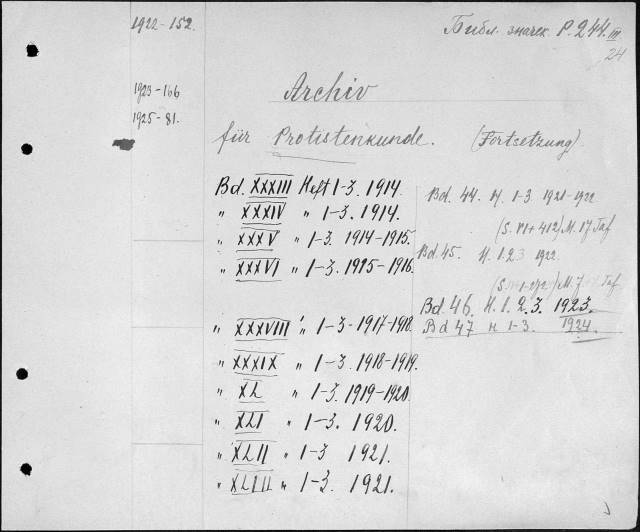 1922-152.
Библ. P. 244. III
24
1923-166
1925-81.
Archiv
für Protistenkunde. (Fortsetzung)
Bd. XXXIII Heft 1-3. 1914.
" XXXIV " 1-3. 1914.
" XXXV " 1-3. 1914-1915.
" XXXVI " 1-3. 1915-1916.
" XXXVIII " 1-3-1917-1918.
" XXXIX " 1-3. 1918-1919.
" XL " 1-3. 1919-1920.
" XLI " 1-3. 1920.
" XLII " 1-3 1921.
" XLIII " 1-3. 1921.
Bd. 44. H. 1-3 1921-1922
(S. VI+412) M. 17 Taf
Bd. 45. H. 1.2.3 1922.
M. 7 Taf.
Bd. 46. H. 1. 2. 3. 1923.
Bd 47 H. 1-3. 1924.